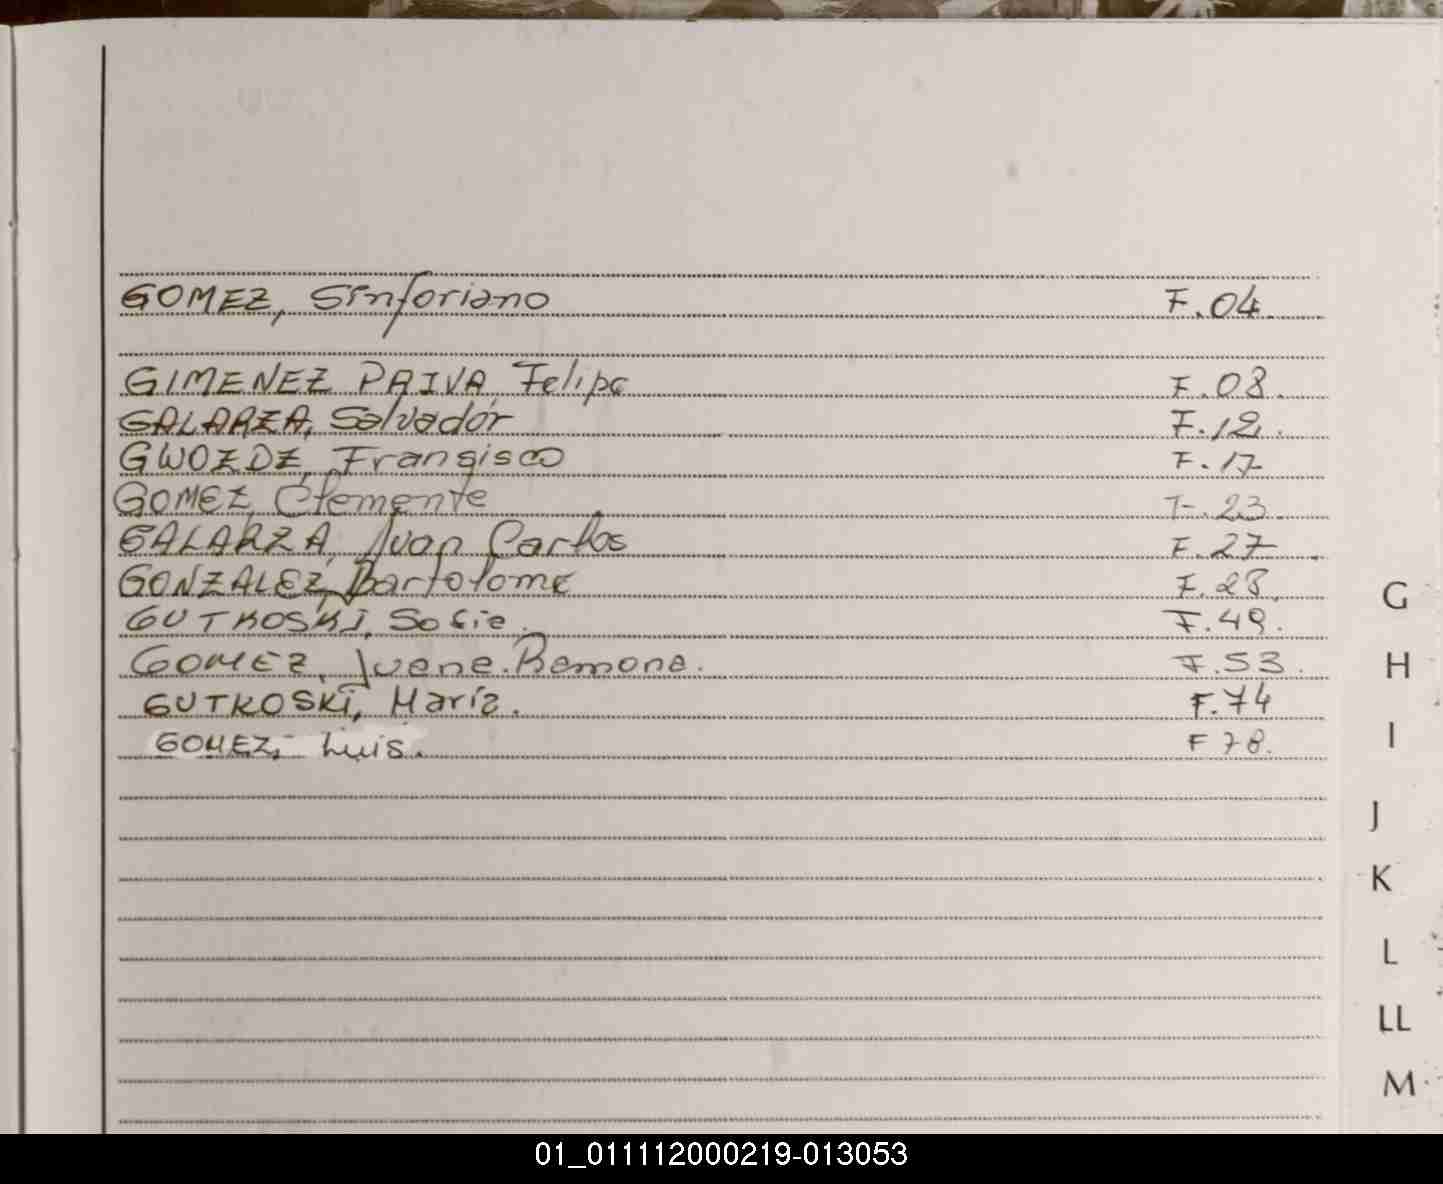 GOMEZ, Sinforiano F.04.
GIMENEZ PAIVA, Felipe F.08.
GALARZA, Salvador F.12.
GWOZDZ, Fransisco F.17
GOMEZ, Clemente F.23
GALARZA, Juan Carlos F.27.
GONZALEZ, Bartolome F.28.
GUTKOSKI, Sofie. F.49.
GOMEZ, Juene.Remone. F.53.
GUTKOSKI, María. F.74
GOMEZ, Luis. F78.
G
H
I
J
K
L
LL
M
01_011112000219-013053